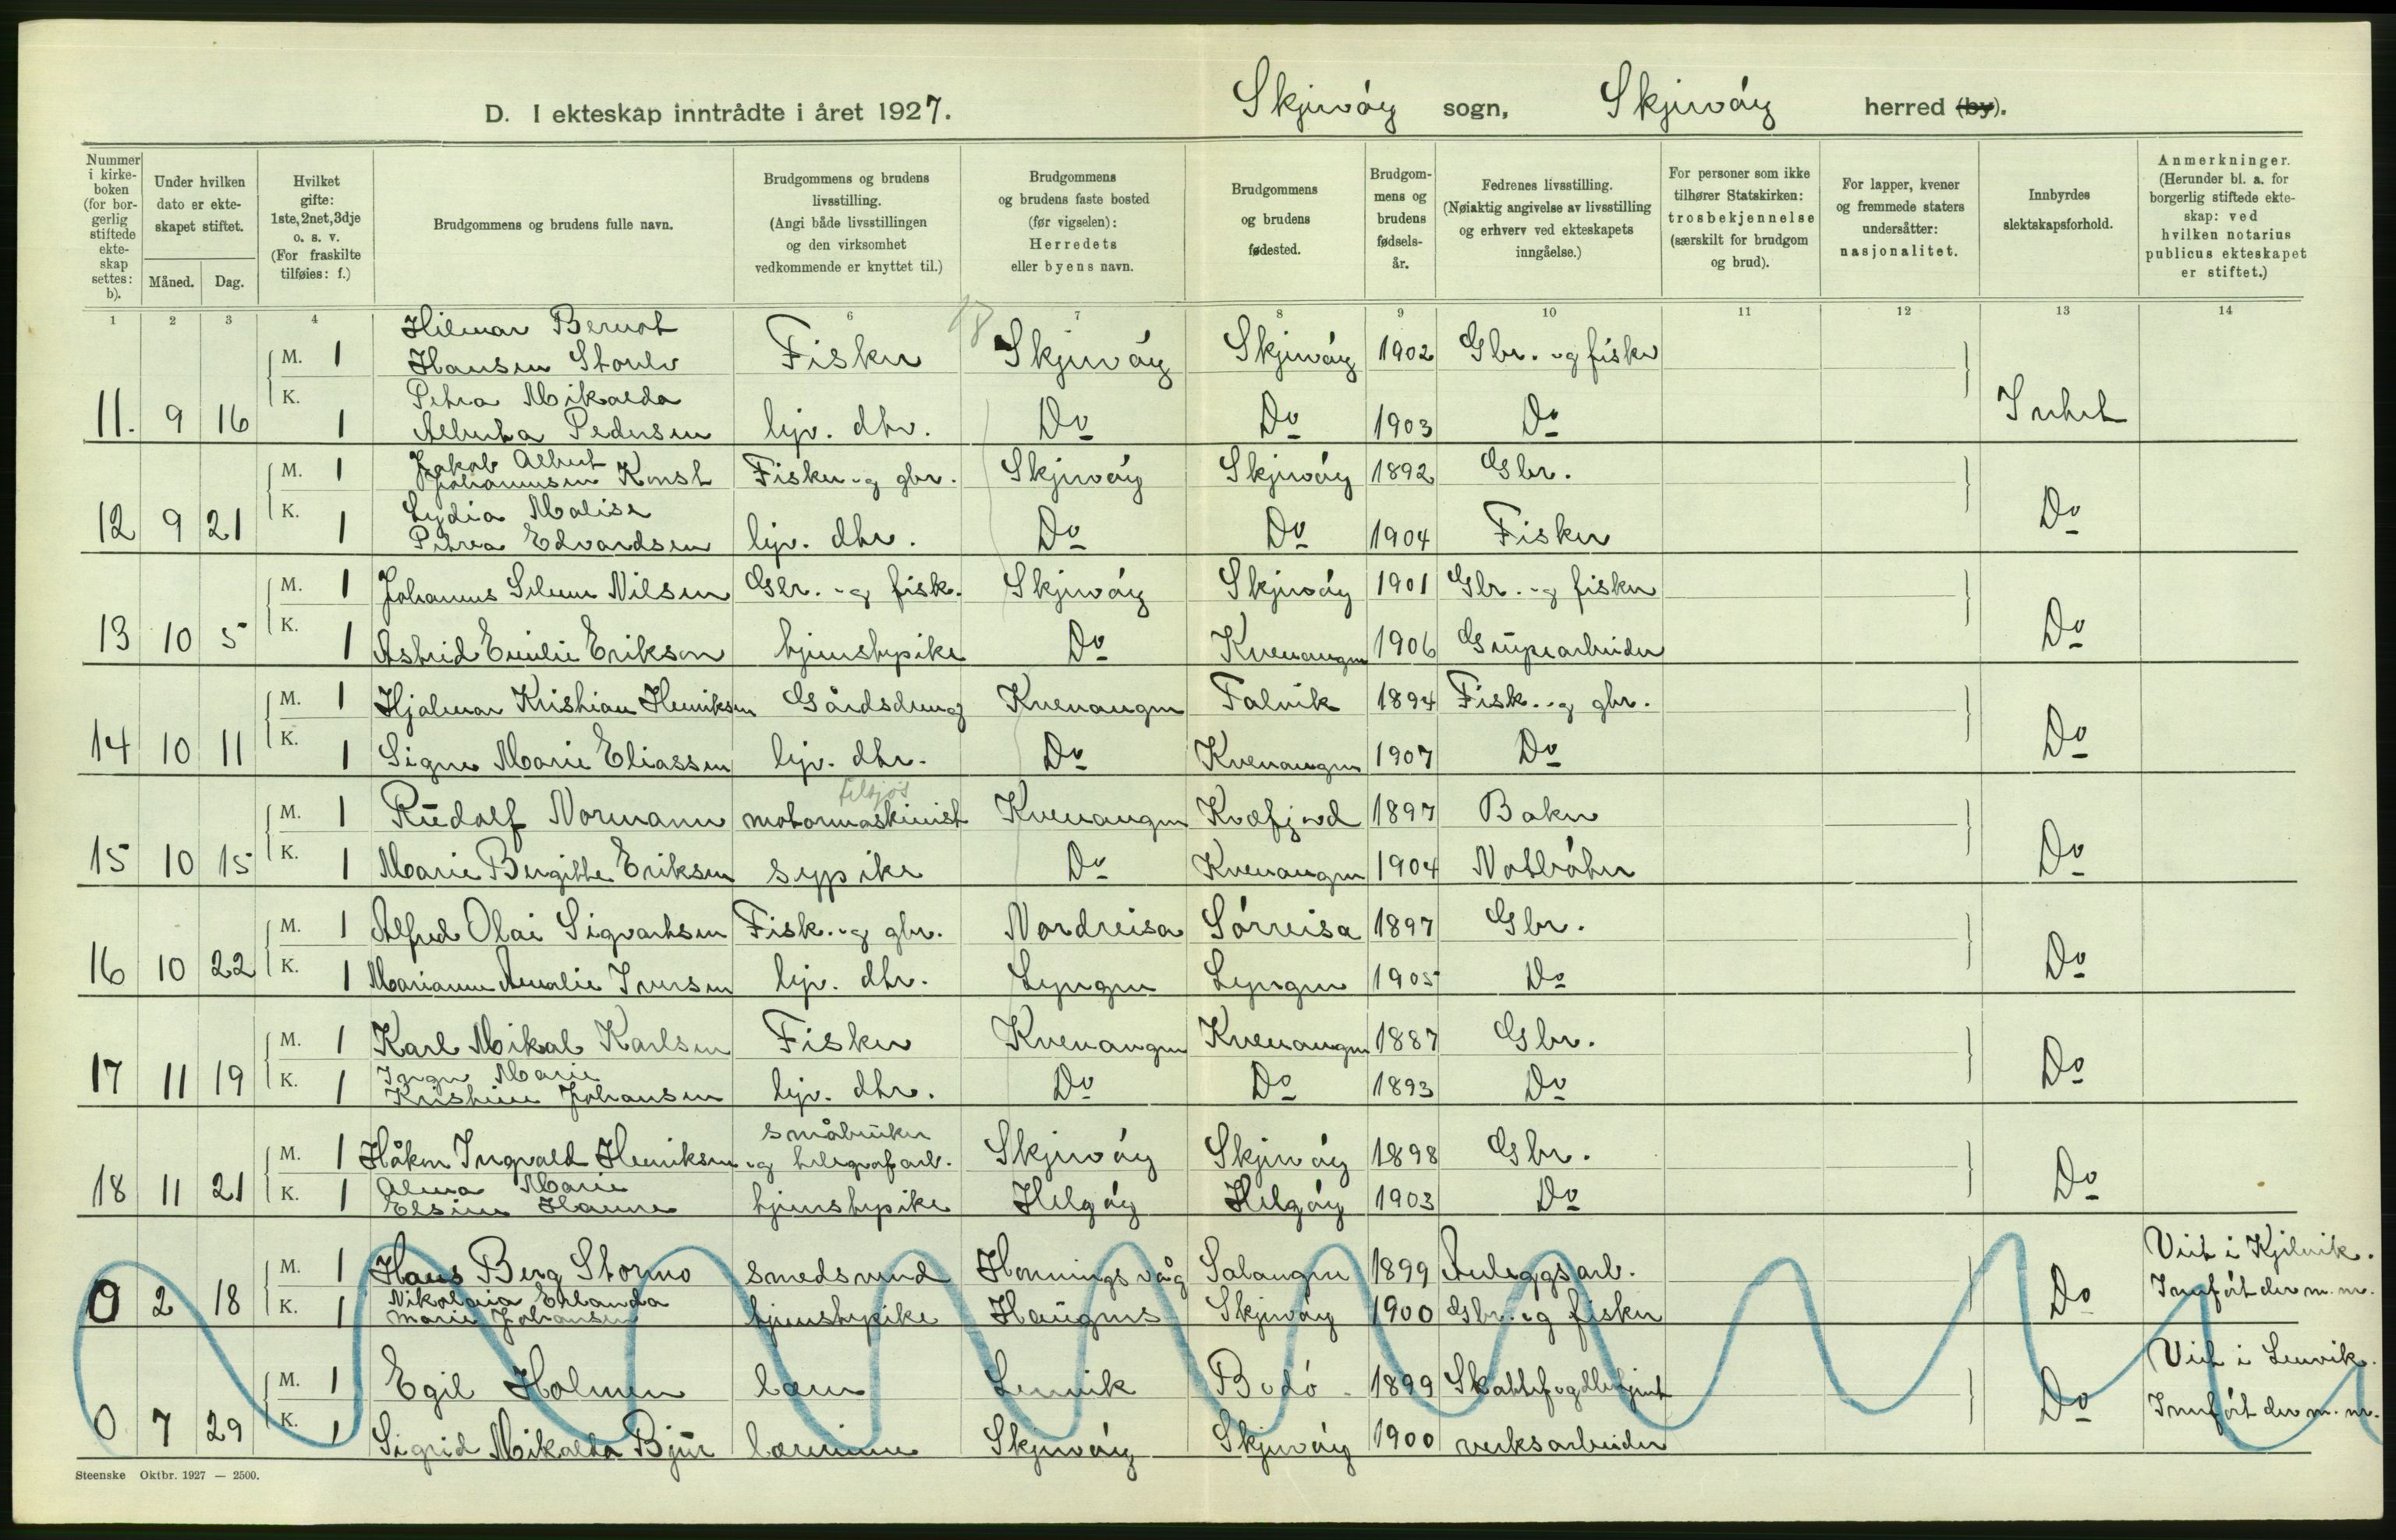 D. I ekteskap inntrådte i året 1927. Skjervøy sogn, Skjervøy herred (by).
Nummer i kirkeboken (for borgerlig stiftede ekteskap settes: b).
Under hvilken dato er ekteskapet stiftet.
Måned. Dag.
Hvilket gifte: 1ste, 2net, 3dje o. s. v. (For fraskilte tilføies: f.)
Brudgommens og brudens fulle navn.
Brudgommens og brudens livsstilling. (Angi både livsstillingen og den virksomhet vedkommende er knyttet til.)
Brudgommens og brudens faste bosted (før vigselen): Herredets eller byens navn.
Brudgommens og brudens fødested.
Brudgommens og brudens fødselsår.
Fedrenes livsstilling. (Nøiaktig angivelse av livsstilling og erhverv ved ekteskapets inngåelse.)
For personer som ikke tilhører Statskirken: trosbekjennelse (særskilt for brudgom og brud).
For lapper, kvener og fremmede staters undersåtter: nasjonalitet.
Innbyrdes slektskapsforhold.
Anmerkninger. (Herunder bl. a. for borgerlig stiftede ekteskap: ved hvilken notarius publicus ekteskapet er stiftet.)
1 2 3 4 6 7 8 9 10 11 12 13 14
18
Hilmar Bernot
M. 1 Hansen Storslv Fisker Skjervøy Skjervøy 1902 Gbr. og fisker
K. Petra Mikalda
11. 9 16 1 Alberta Pedersen hjv. dtr. Do Do 1903 Do Intet
M. 1 Jakob Albert
Johannesen Konst Fisker og gbr. Skjervøy Skjervøy 1892 Gbr.
K. Lydia Malise
12 9 21 1 Petrea Edvardsen hjv. dtr. Do Do 1904 Fisker Do
M. 1 Johannes Selmer Nilsen Gbr. og fisk. Skjervøy Skjervøy 1901 Gbr. og fisker
13 10 5 K. 1 Astrid Emilie Erikson tjenestepike Do Kvenangen 1906 Grubearbeider Do
M. 1 Hjalmar Kristian Henriksen Gårdsdreng Kvenangen Talvik 1894 Fisk. og gbr.
14 10 11 K. 1 Signe Marie Eliassen hjv. dtr. Do Kvenangen 1907 Do Do
tilsjøs
M. 1 Rudolf Normann motormaskinist Kvenangen Kvæfjord 1897 Baker
15 10 15 K. 1 Marie Bergitte Eriksen sypike Do Kvenangen 1904 Notbøter Do
M. 1 Alfred Olai Sigvartsen Fisk. og gbr. Nordreisa Sørreisa 1897 Gbr.
16 10 22 K. 1 Marianne Amalie Iversen hjv. dtr. Lyngen Lyngen 1905 Do Do
M. 1 Karl Mikal Karlsen Fisker Kvenangen Kvenangen 1887 Gbr.
Inga Marie
17 11 19 K. 1 Kristine Johansen hjv. dtr. Do Do 1893 Do Do
småbruker
M. 1 Håkon Ingvald Henriksen og telegrafarb. Skjervøy Skjervøy 1898 Gbr.
Alma Marie
18 11 21 K. 1 Elsine Hanne tjenestepike Helgøy Helgøy 1903 Do Do
M. 1 Hans Berg Stormo smedsvend Honningsvåg Salangen 1899 Anleggsarb. Viet i Kjelvik.
Nikolaia Erlanda
0 2 18 K. 1 Marie Johansen tjenestepike Haugnes Skjervøy 1900 Gbr. og fisker Do Innført der m. nr.
M. 1 Egil Holmen lærer Lenvik Bodø 1899 Skattefogdbetjent Viet i Lenvik.
0 7 29 K. 1 Sigrid Mikalda Bjur lærerinne Skjervøy Skjervøy 1900 verksarbeider Do Innført der m. nr.
Steenske Oktbr. 1927 — 2500.